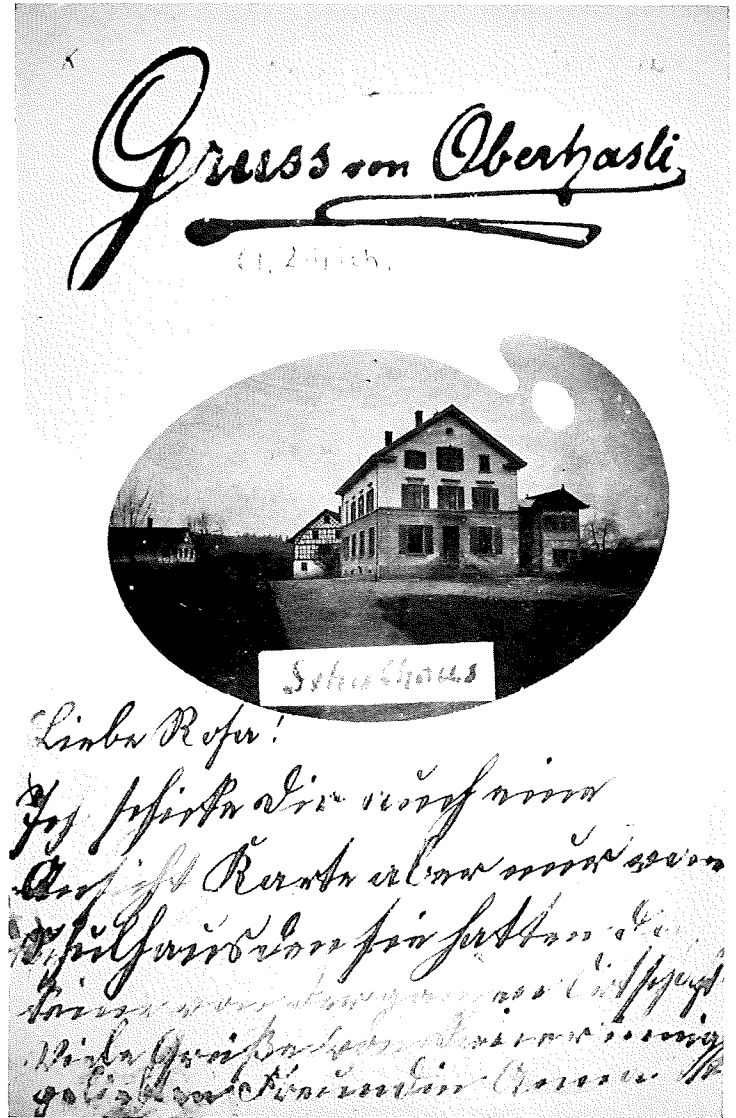 Gruss von Oberhasli
Ct. Zürich.
Schulhaus
Liebe Rosa!
Ich schicke Dir auch eine
Ansicht Karte aber nur vom
Schulhaus den sie hatten
keine von der ganzen Ortschaft.
Viele Grüße von Deiner innig
geliebten Freundin